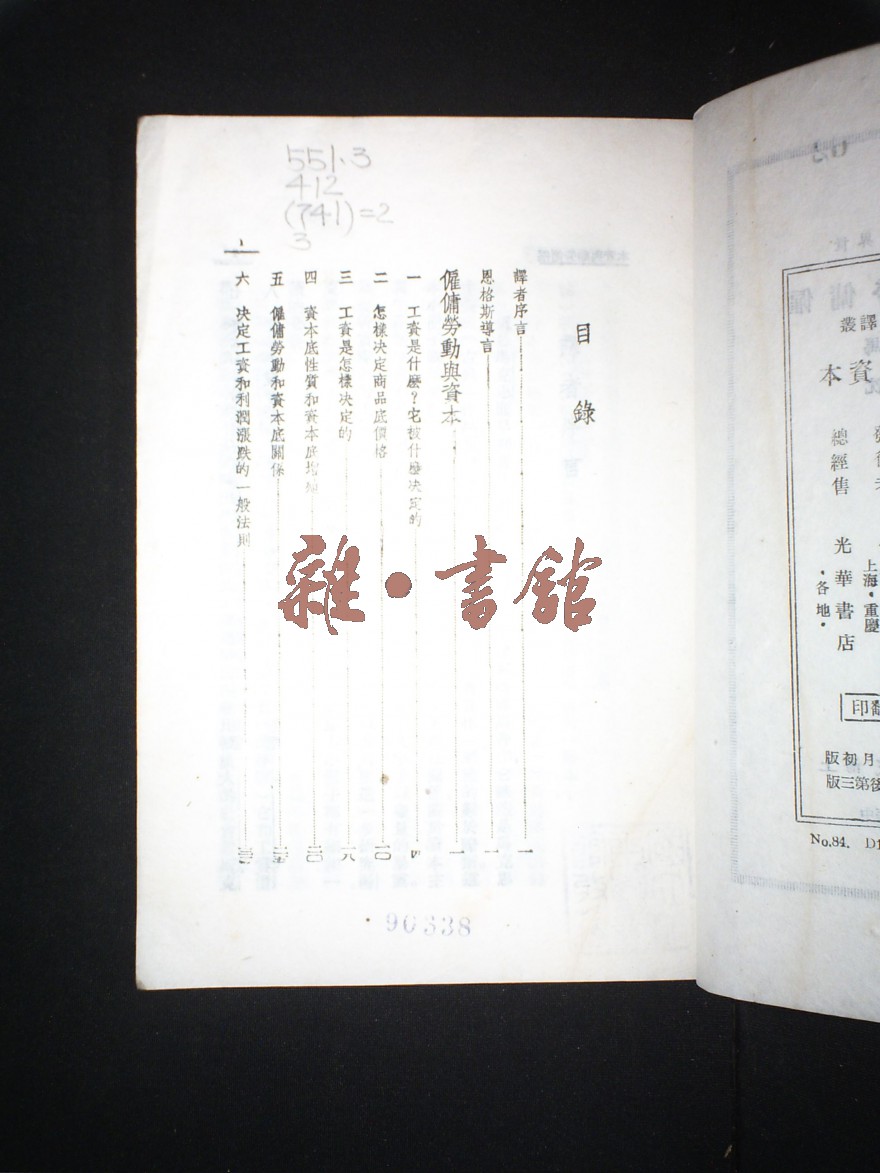 551.3
412
(741)=2
3
目錄
譯者序言 一
恩格斯導言 一
僱傭勞動與資本 一
一 工資是什麼？它被什麼决定的
二 怎樣决定商品底價格 一〇
三 工資是怎樣决定的 一八
四 資本底性質和資本底增 二〇
五 僱傭勞動和資本底關係
六 决定工資和利潤漲跌的一般法則
雜·書館
90338
譯叢
資本
總經售 光華書店
上海·重慶
·各地·
翻印
月初版
後第三版
No.84.